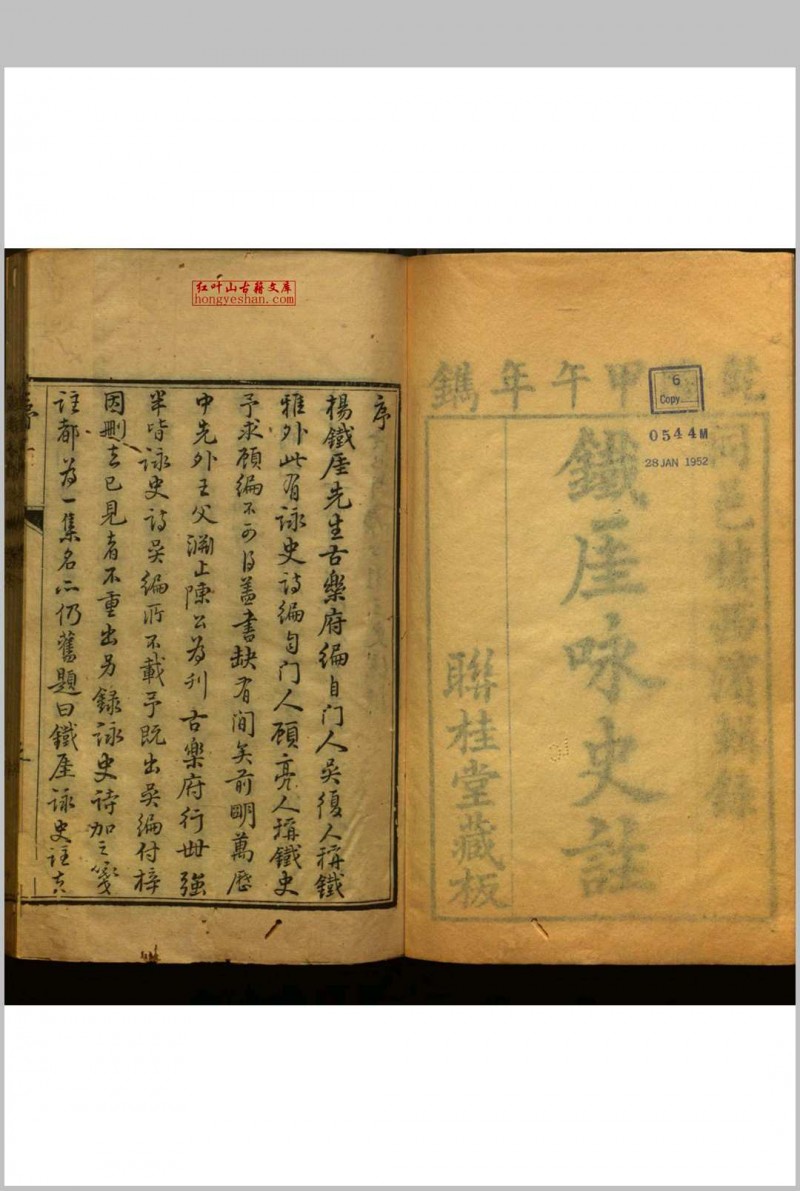 乾隆甲午年鐫
同邑樓西濱輯錄
鐵厓咏史註
聯桂堂藏板
6
Copy
0544M
28 JAN 1952
红叶山古籍文库
hongyeshan.com
序
楊鐵厓先生古樂府編自门人吳復人稱鐵
雅外此有詠史詩編自门人顧亮人稱鐵史
予求顧編不可得蓋書缺有间矣前明萬歷
中先外王父淵止陳公為刊古樂府行世強
半皆詠史詩吳編所不載予既出吳編付梓
因刪去已見者不重出另錄詠史詩加之箋
註都為一集名亦仍舊題曰鐵厓詠史註